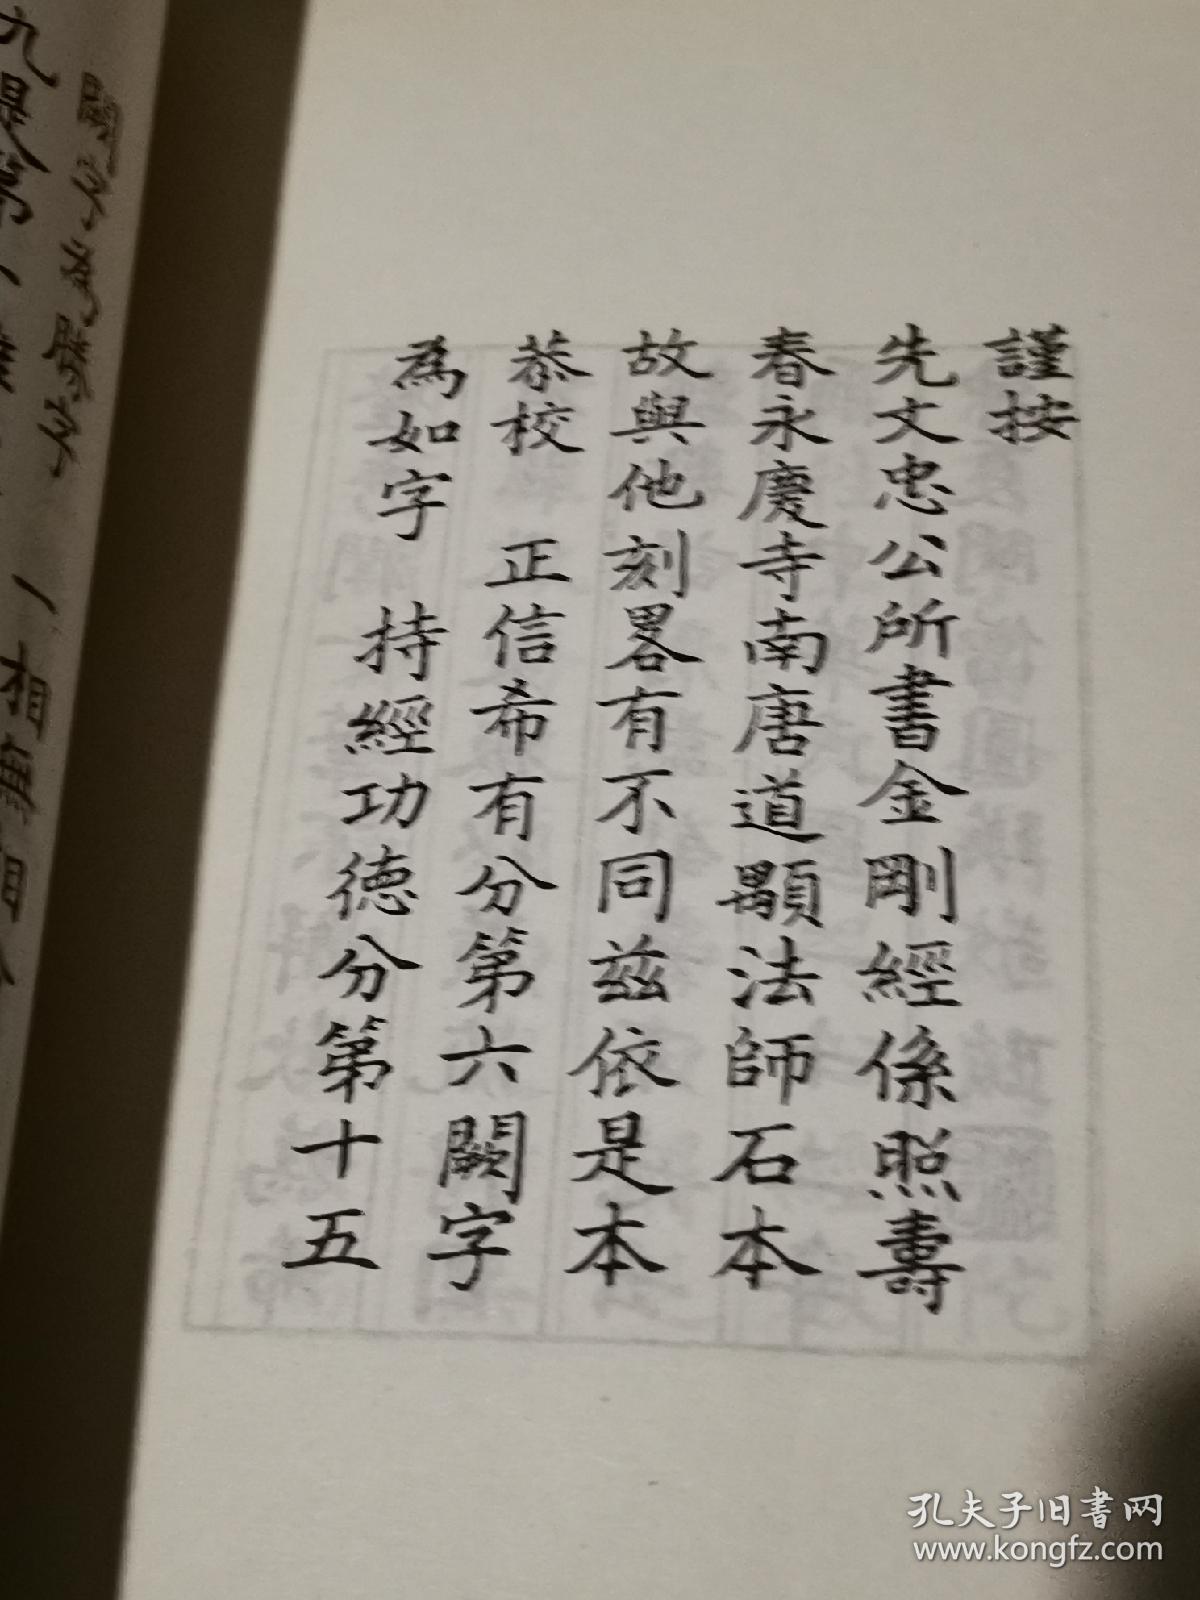 謹按
先文忠公所書金剛經係照壽
春永慶寺南唐道顒法師石本
故與他刻畧有不同兹依是本
恭校　正信希有分第六闕字
為如字　持經功德分第十五
闕字為勝字
孔夫子旧书网
www.kongfz.com